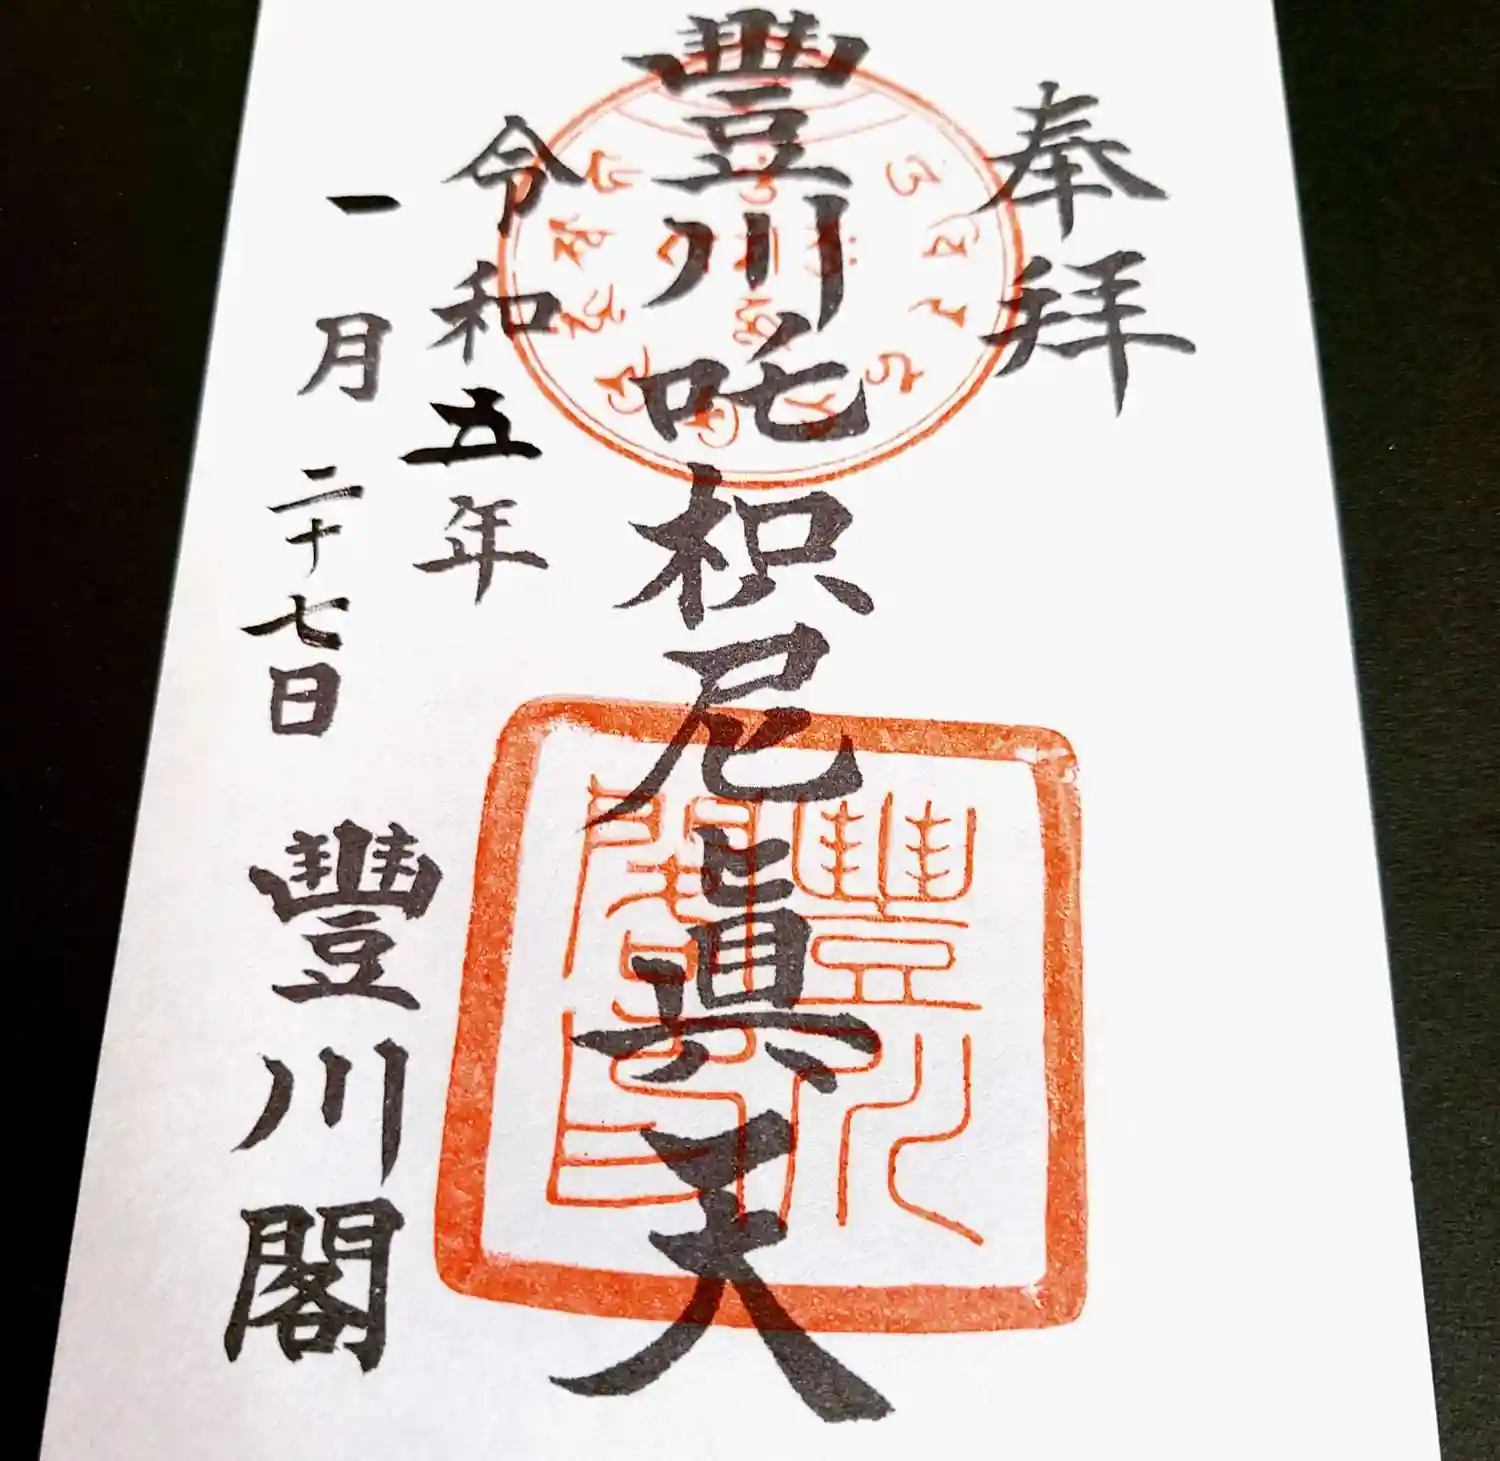 奉拝
豐川吒枳尼眞天
令和五年
一月二十七日
豐川閣
豐川閣印